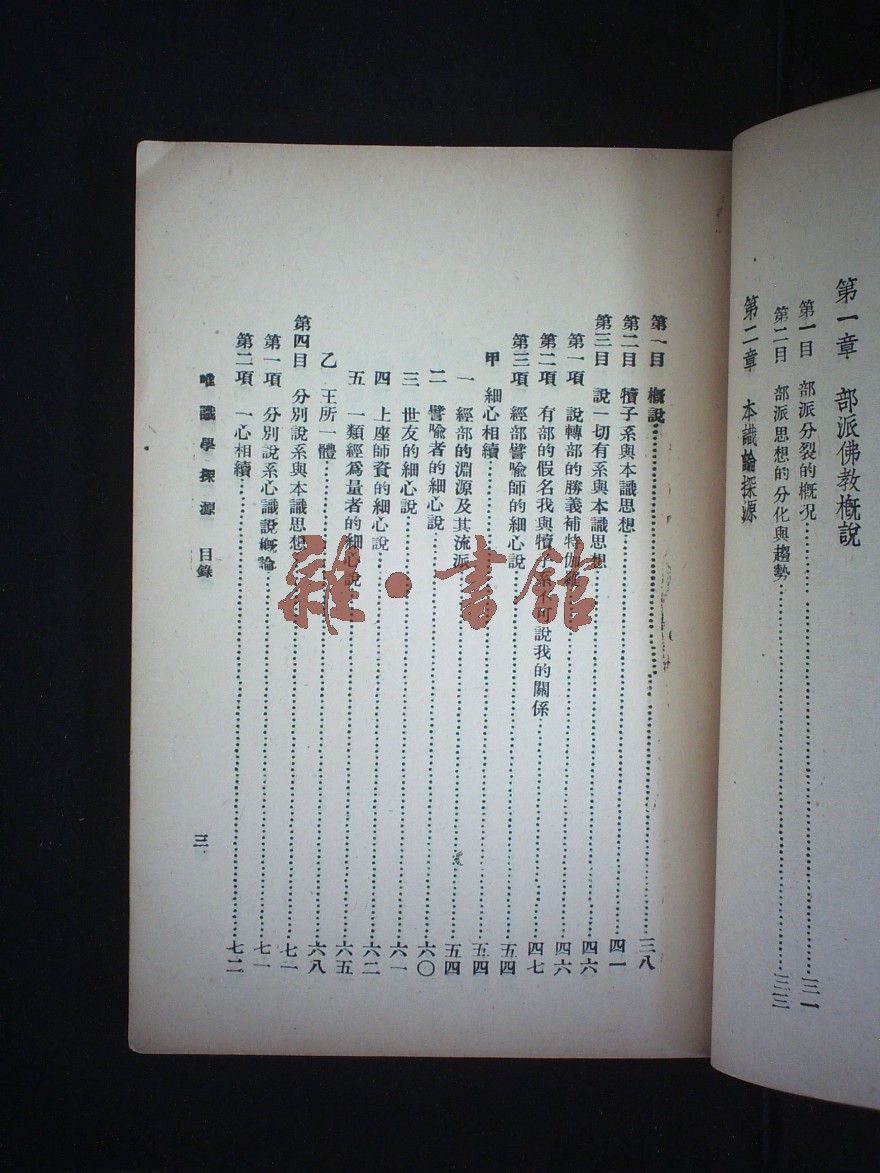 第一章 部派佛教概說
第一目 部派分裂的概況……三一
第二目 部派思想的分化與趨勢……三三
第二章 本識論探源
第一目 概說……三八
第二目 犢子系與本識思想……四一
第三目 說一切有系與本識思想……四六
第一項 說轉部的勝義補特伽羅……四六
第二項 有部的假名我與犢子系不可說我的關係……四七
第三項 經部譬喻師的細心說……五四
甲 細心相續……五四
一 經部的淵源及其流派……五四
二 譬喻者的細心說……六〇
三 世友的細心說……六一
四 上座師資的細心說……六二
五 一類經為量者的細心說……六五
乙 王所一體……六八
第四目 分別說系與本識思想……七一
第一項 分別說系心識說概論……七一
第二項 一心相續……七二
唯識學探源 目錄
三
雜·書館